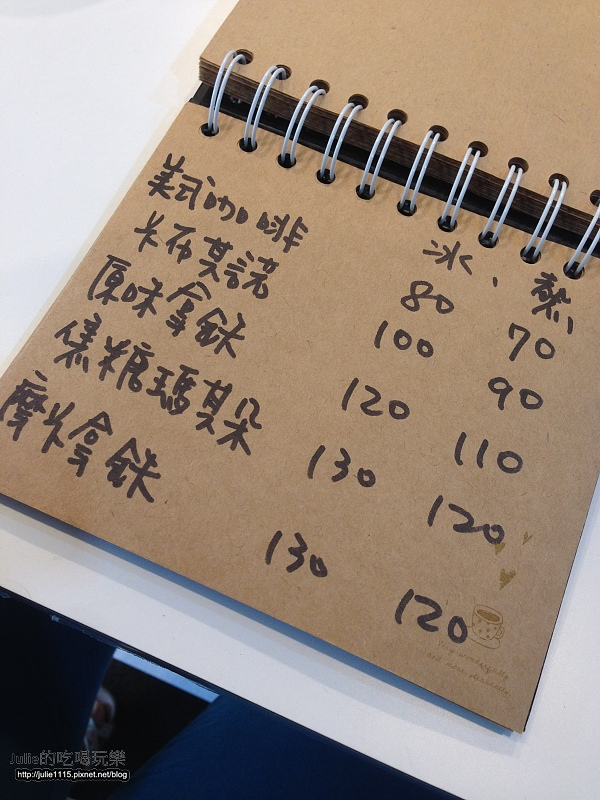 冰、熱
美式咖啡 80 70
卡布其諾 100 90
原味拿鉄 120 110
焦糖瑪其朵 130 120
摩卡拿鉄 130 120
Julie的吃喝玩樂
http://julie1115.pixnet.net/blog